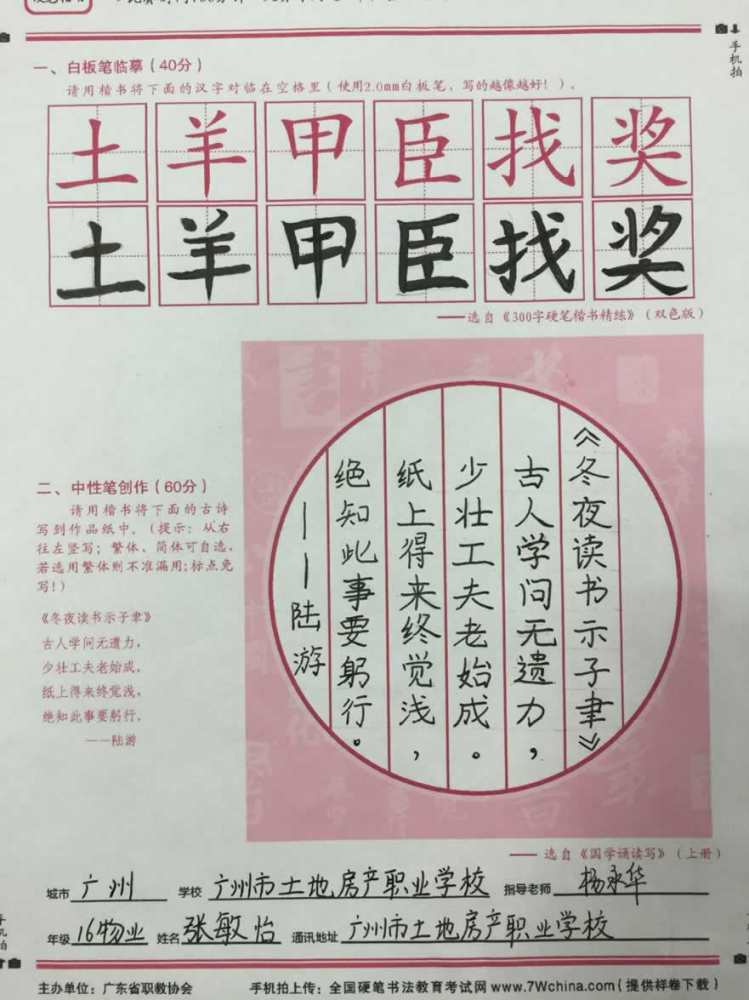 手机拍
一、白板笔临摹（40分）
请用楷书将下面的汉字对临在空格里（使用2.0mm白板笔，写的越像越好！）。
土羊甲臣找奖
土羊甲臣找奖
——选自《300字硬笔楷书精练》（双色版）
二、中性笔创作（60分）
请用楷书将下面的古诗
写到作品纸中。（提示：从右
往左竖写；繁体、简体可自选，
若选用繁体则不准漏用；标点免
写！）
《冬夜读书示子聿》
古人学问无遗力，
少壮工夫老始成。
纸上得来终觉浅，
绝知此事要躬行。
——陆游
《冬夜读书示子聿》
古人学问无遗力，
少壮工夫老始成。
纸上得来终觉浅，
绝知此事要躬行。
——陆游
——选自《国学诵读写》（上册）
城市 广州 学校 广州市土地房产职业学校 指导老师 杨永华
年级 16物业 姓名 张敏怡 通讯地址 广州市土地房产职业学校
手机拍
主办单位：广东省职教协会 手机拍上传：全国硬笔书法教育考试网 www.7Wchina.com（提供样卷下载）